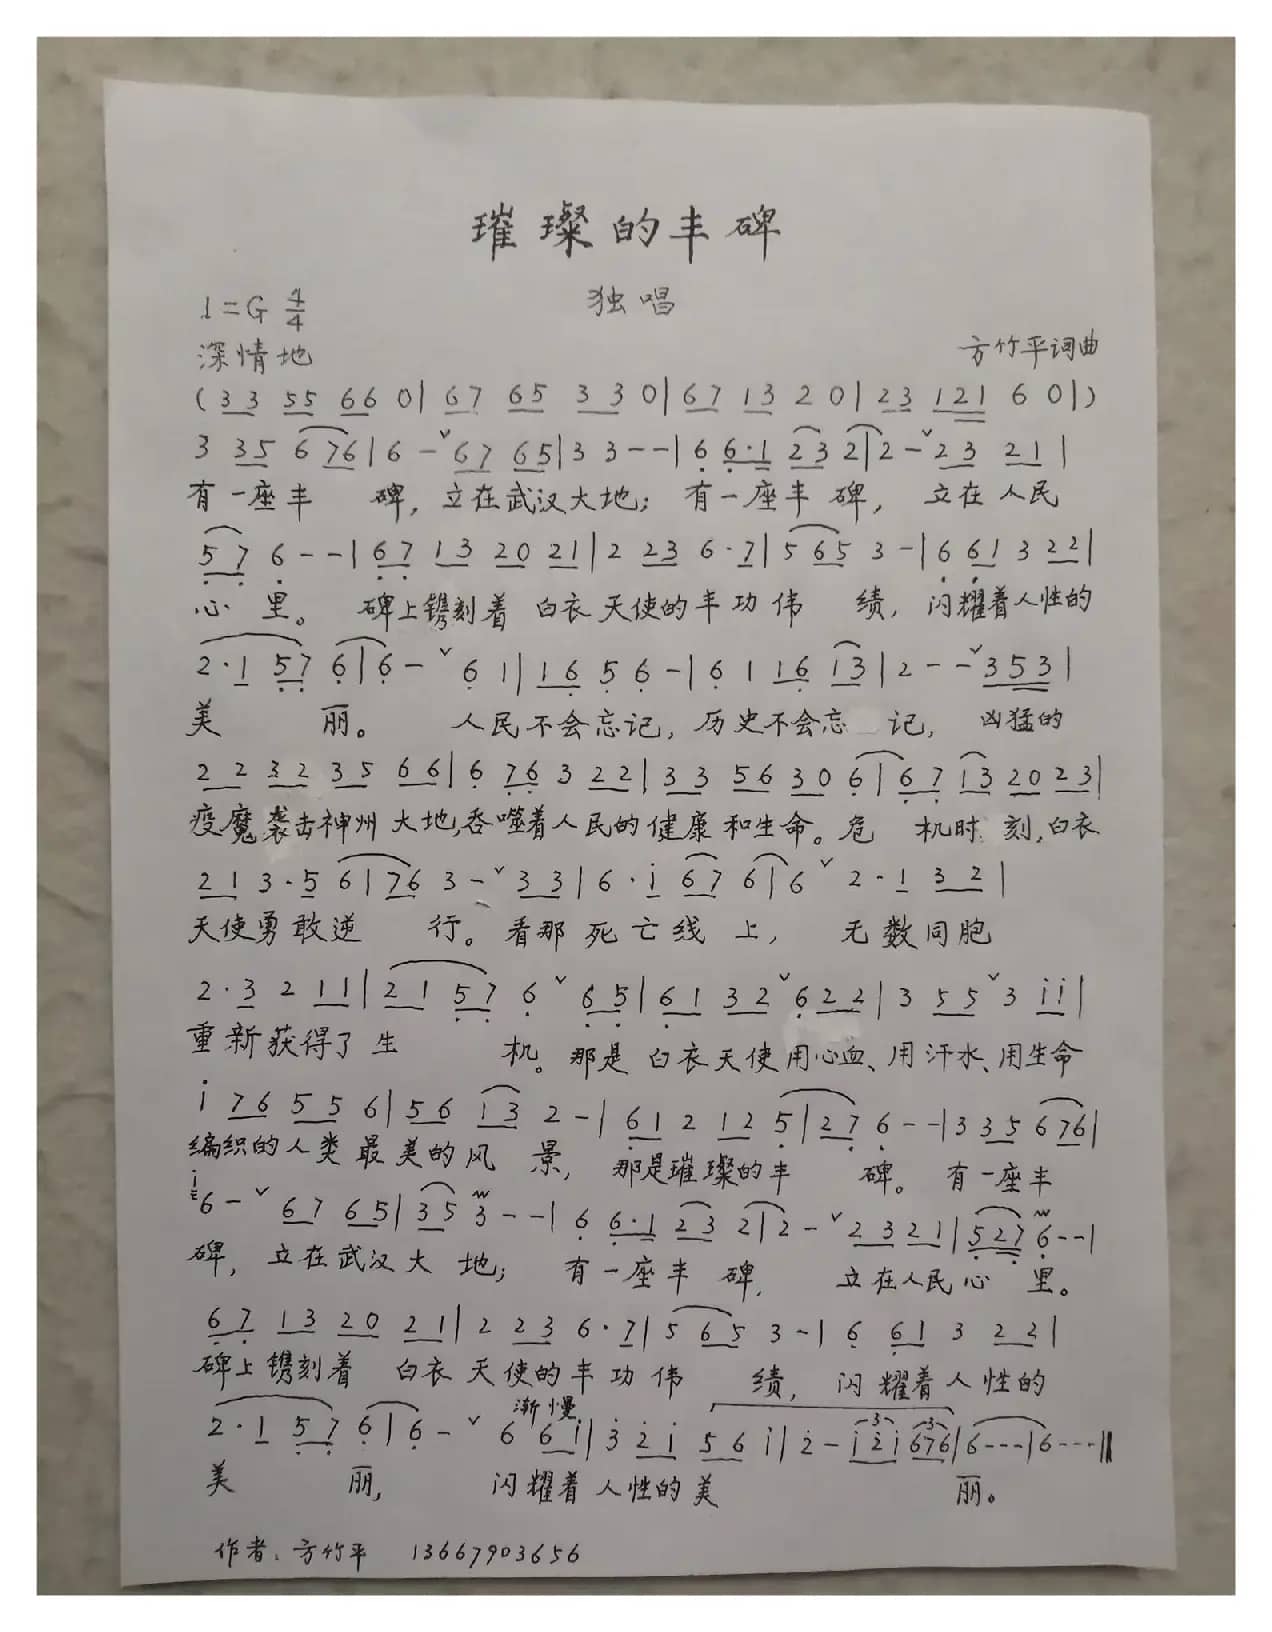 璀璨的丰碑
独唱
1=G 4/4
深情地
方竹平词曲
(3 3 5 5 6 6 0|6 7 6 5 3 3 0|6 7 1 3 2 0|2 3 1 2 1 6 0|)
3 3 5 6 7 6|6 - ˇ 6 7 6 5|3 3 - -|6 6·1 2 3 2|2 - ˇ 2 3 2 1|
有一座丰 碑，立在武汉大地；有一座丰碑， 立在人民
5 7 6 - -|6 7 1 3 2 0 2 1|2 2 3 6·7|5 6 5 3 -|6 6 1 3 2 2|
心里。 碑上镌刻着 白衣天使的丰功伟 绩，闪耀着人性的
2·1 5 7 6|6 - ˇ 6 1|1 6 5 6 -|6 1 1 6 1 3|2 - - ˇ 3 5 3|
美 丽。 人民不会忘记，历史不会忘 记， 凶猛的
2 2 3 2 3 5 6 6|6 7 6 3 2 2|3 3 5 6 3 0 6|6 7 1 3 2 0 2 3|
疫魔袭击神州大地，吞噬着人民的健康和生命。危 机时刻，白衣
2 1 3·5 6|7 6 3 - ˇ 3 3|6·i 6 7 6|6 ˇ 2·1 3 2|
天使勇敢逆 行。看那死亡线上， 无数同胞
2·3 2 1 1|2 1 5 7 6 ˇ 6 5|6 1 3 2 ˇ 6 2 2|3 5 5 ˇ 3 i i|
重新获得了生 机。那是白衣天使用心血、用汗水、用生命
i 7 6 5 5 6|5 6 i 3 2 -|6 1 2 1 2 5|2 7 6 - -|3 3 5 6 7 6|
编织的人类最美的风 景， 那是璀璨的丰 碑。有一座丰
i 6 - ˇ 6 7 6 5|3 5 3 - -|6 6·1 2 3 2|2 - ˇ 2 3 2 1|5 2 7 6 - -|
碑，立在武汉大 地； 有一座丰碑， 立在人民心 里。
6 7 1 3 2 0 2 1|2 2 3 6·7|5 6 5 3 -|6 6 1 3 2 2|
碑上镌刻着 白衣天使的丰功伟 绩，闪耀着人性的
渐慢
2·1 5 7 6|6 - ˇ 6 6 i|3 2 i 5 6 i|2 - i 2 i 6 7 6|6 - - -|6 - - -‖
美 丽， 闪耀着人性的美 丽。
作者：方竹平 13667903656